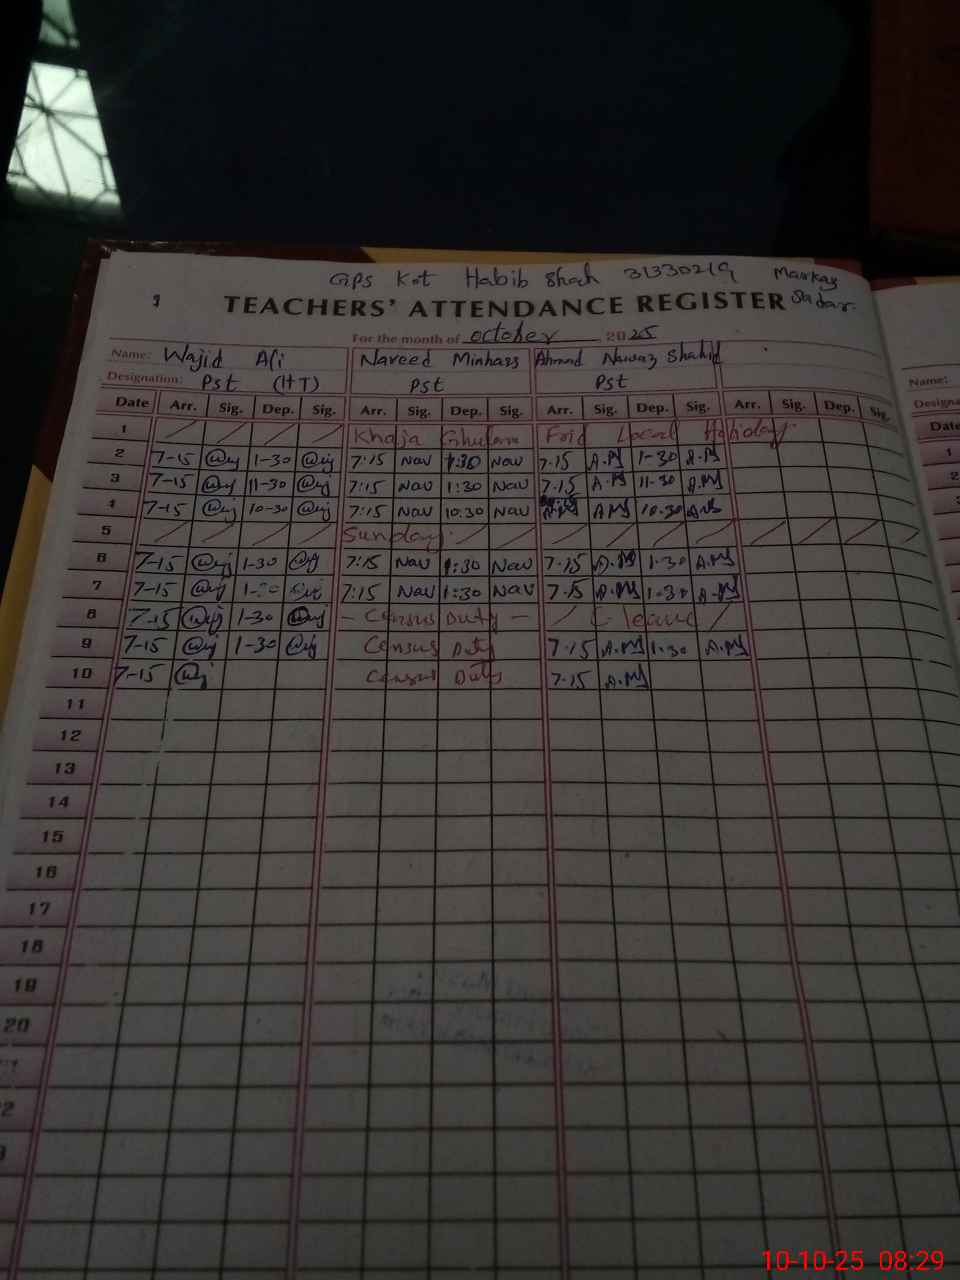 GPS Kot Habib Shah 31330219 Markaz
Sadar.
TEACHERS' ATTENDANCE REGISTER
For the month of october 2025
Name: Wajid Ali Naveed Minhass Ahmad Nawaz Shahid
Designation: Pst (HT) Pst Pst
Date Arr. Sig. Dep. Sig. Arr. Sig. Dep. Sig. Arr. Sig. Dep. Sig. Arr. Sig. Dep. Sig.
1 Khaja Ghulam Frid Local Holiday
2 7-15 1-30 7:15 Nav 1:30 Nav 7.15 A.M 1-30 A.M
3 7-15 11-30 7:15 Nav 1:30 Nav 7.15 A.M 11-30 A.M
4 7-15 10-30 7:15 Nav 10:30 Nav A.M 10.30
5 Sunday
6 7-15 1-30 7:15 Nav 1:30 Nav 7.15 A.M 1.30 A.M
7 7-15 1-30 7:15 Nav 1:30 Nav 7.15 A.M 1.30 A.M
8 7-15 1-30 - Census Duty - / C leave /
9 7-15 1-30 Census Duty 7.15 A.M 1.30 A.M
10 7-15 Census Duty 7.15 A.M
11
12
13
14
15
16
17
18
19
20
Name:
Date
1
2
10-10-25 08:29